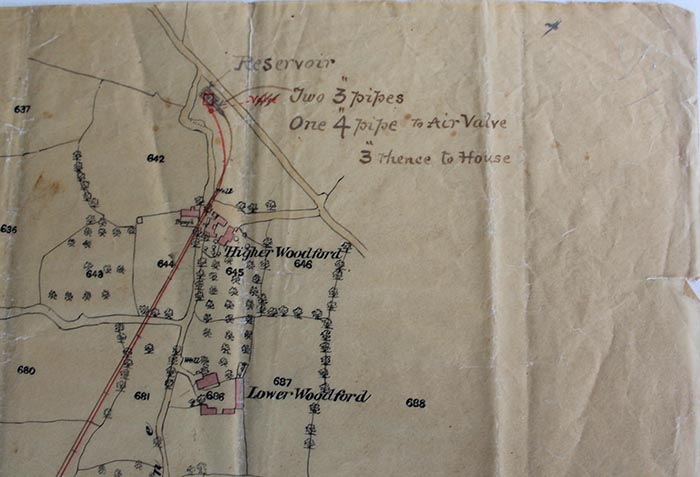 Reservoir
Two 3" pipes
One 4" pipe to Air Valve
3" thence to House
637
642
Well
636
Higher Woodford
643
644
645
646
680
Well
681
686
687
Lower Woodford
688
n e